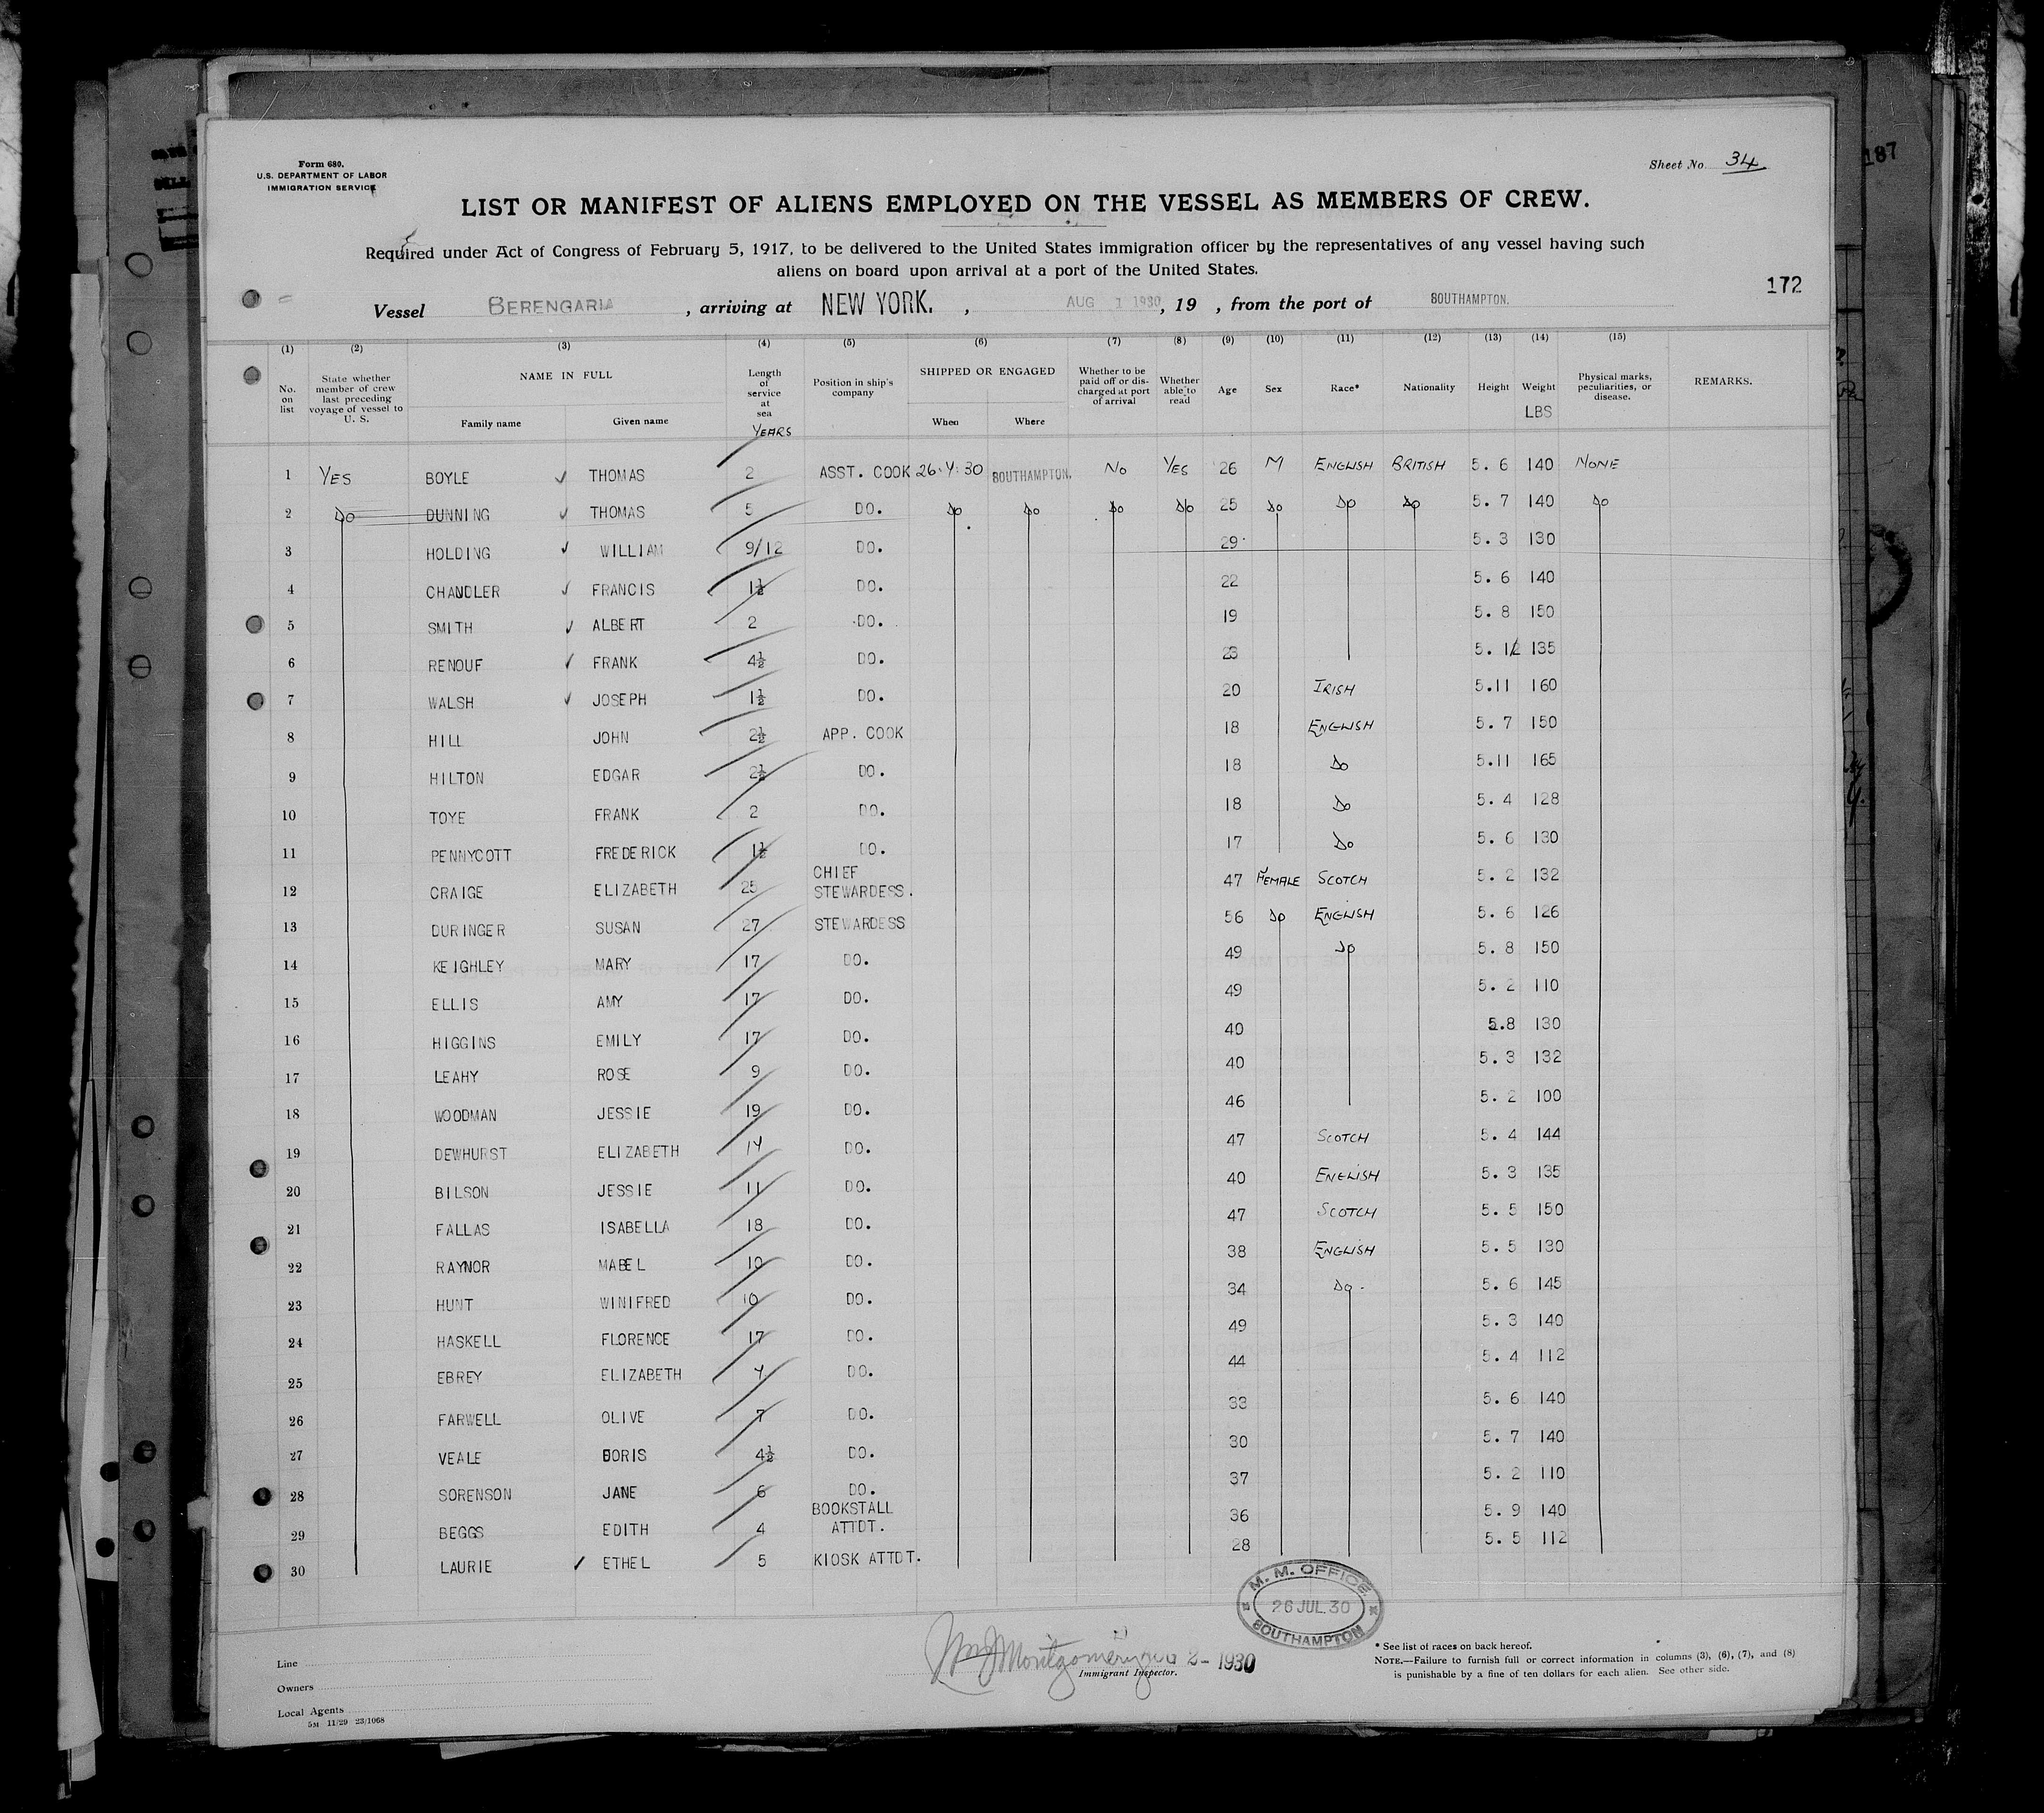 187
Form 680.
U.S. DEPARTMENT OF LABOR
IMMIGRATION SERVICE
Sheet No. 34
LIST OR MANIFEST OF ALIENS EMPLOYED ON THE VESSEL AS MEMBERS OF CREW.
Required under Act of Congress of February 5, 1917, to be delivered to the United States immigration officer by the representatives of any vessel having such
aliens on board upon arrival at a port of the United States.
172
Vessel BERENGARIA, arriving at NEW YORK. , AUG 1 1930, 19 , from the port of SOUTHAMPTON.
(1) (2) (3) (4) (5) (6) (7) (8) (9) (10) (11) (12) (13) (14) (15)
No. on list State whether member of crew last preceding voyage of vessel to U. S. NAME IN FULL Family name Given name Length of service at sea YEARS Position in ship's company SHIPPED OR ENGAGED When Where Whether to be paid off or discharged at port of arrival Whether able to read Age Sex Race* Nationality Height Weight LBS Physical marks, peculiarities, or disease. REMARKS.
1 YES BOYLE THOMAS 2 ASST. COOK 26.4.30 SOUTHAMPTON. NO YES 26 M ENGLISH BRITISH 5. 6 140 NONE
2 Do DUNNING THOMAS 5 DO. Do Do Do Do 25 Do Do Do 5. 7 140 Do
3 HOLDING WILLIAM 9/12 DO. 29 5. 3 130
4 CHANDLER FRANCIS 1½ DO. 22 5. 6 140
5 SMITH ALBERT 2 DO. 19 5. 8 150
6 RENOUF FRANK 4½ DO. 23 135
7 WALSH JOSEPH 1½ DO. 20 IRISH 5.11 160
8 HILL JOHN 2½ APP. COOK 18 ENGLISH 5. 7 150
9 HILTON EDGAR 2½ DO. 18 Do 5.11 165
10 TOYE FRANK 2 DO. 18 Do 5. 4 128
11 PENNYCOTT FREDERICK 1½ DO. 17 Do 5. 6 130
12 CRAIGE ELIZABETH 25 CHIEF STEWARDESS. 47 FEMALE SCOTCH 5. 2 132
13 DURINGER SUSAN 27 STEWARDESS 56 Do ENGLISH 5. 6 126
14 KEIGHLEY MARY 17 DO. 49 Do 5. 8 150
15 ELLIS AMY 17 DO. 49 5. 2 110
16 HIGGINS EMILY 17 DO. 40 5.8 130
17 LEAHY ROSE 9 DO. 40 5. 3 132
18 WOODMAN JESSIE 19 DO. 46 5. 2 100
19 DEWHURST ELIZABETH 14 DO. 47 SCOTCH 5. 4 144
20 BILSON JESSIE 11 DO. 40 ENGLISH 5. 3 135
21 FALLAS ISABELLA 18 DO. 47 SCOTCH 5. 5 150
22 RAYNOR MABEL 10 DO. 38 ENGLISH 5. 5 130
23 HUNT WINIFRED 10 DO. 34 Do. 5. 6 145
24 HASKELL FLORENCE 17 DO. 49 5. 3 140
25 EBREY ELIZABETH 4 DO. 44 5. 4 112
26 FARWELL OLIVE 7 DO. 33 5. 6 140
27 VEALE DORIS 4½ DO. 30 5. 7 140
28 SORENSON JANE 6 DO. 37 5. 2 110
29 BEGGS EDITH 4 BOOKSTALL ATTDT. 36 5. 9 140
30 LAURIE ETHEL 5 KIOSK ATTDT. 28 5. 5 112
M. M. OFFICE
26 JUL.30
SOUTHAMPTON
Line
Owners
Local Agents
5M 11/29 23/1068
Wm J Montgomery AUG 2- 1930
Immigrant Inspector.
* See list of races on back hereof.
NOTE.—Failure to furnish full or correct information in columns (3), (6), (7), and (8)
is punishable by a fine of ten dollars for each alien. See other side.